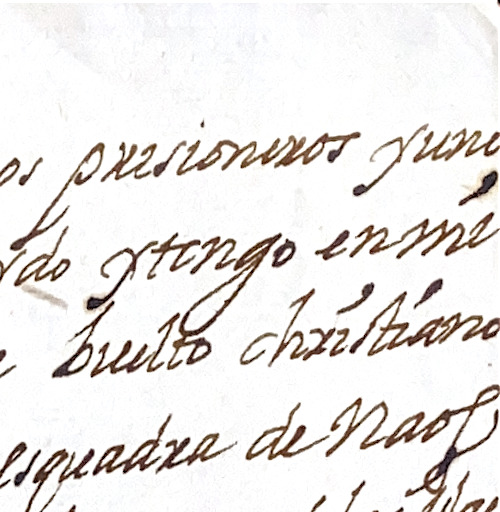 os prisioneros y un
rdo y tengo en mi
e buelto christiano
esquadra de Naos